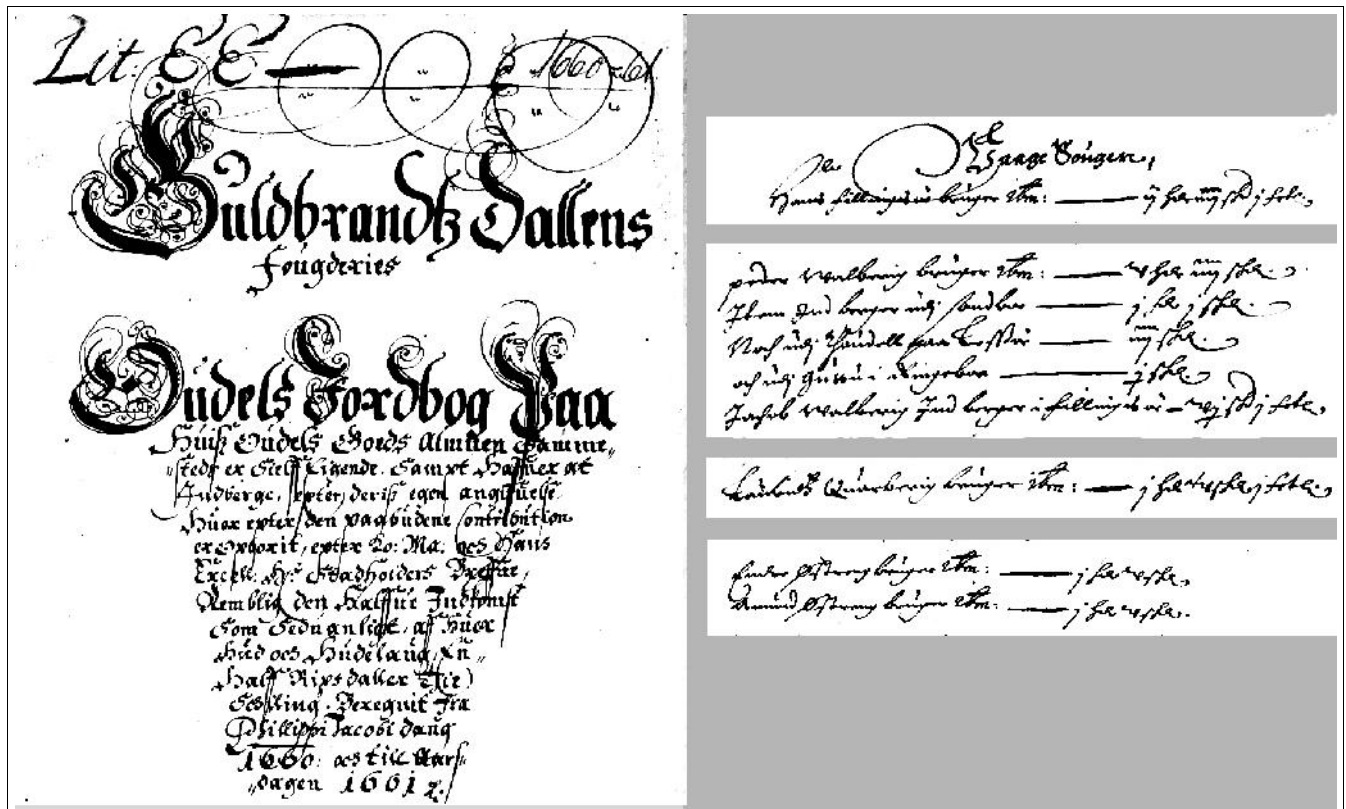 Lit: EE — 1660-61.
Guldbrandtz Dallens
Fougderies
Oudels Jordbog Paa
Huiß Oudels Goeds Almuen Samme„
„steds er Sielf Eigende. Sampt Haffuer at
Indberge, epter deris egen angifuelse
Huor epter den paabudene Contribution
er oporit, epter Ko: Ma: och Hans
Excell: H: Stadholders Breffue,
Nemblig den Halffue Indkomst
Som Seduanligt, af Huer
Hud och Hudelaug, En„
Half Rixsdaller Thie
Schilling. Beregnit Fra
Philippi Jacobi daug
1660: och till Aars„
„dagen 1661
Vaage Sougen,
Hans Fillingsuo bruger ibm: — ij hdr iiij skd j fetl.
peder Walberig bruger ibm: — v hdr iiij skl.
Item Ind berger udj Sandboe — j hd j skl.
Noch udj paa Lessøe — iiij skl.
och udj i Ringeboe — j skl.
Jachob Walberig Ind berger i Fillingsuo — vj skd j fetl.
Quarberig bruger ibm: — j hd v skl j fetl.
Ender Østreng bruger ibm: — j hd v skl.
Amund Østreng bruger ibm: — j hd v skl.